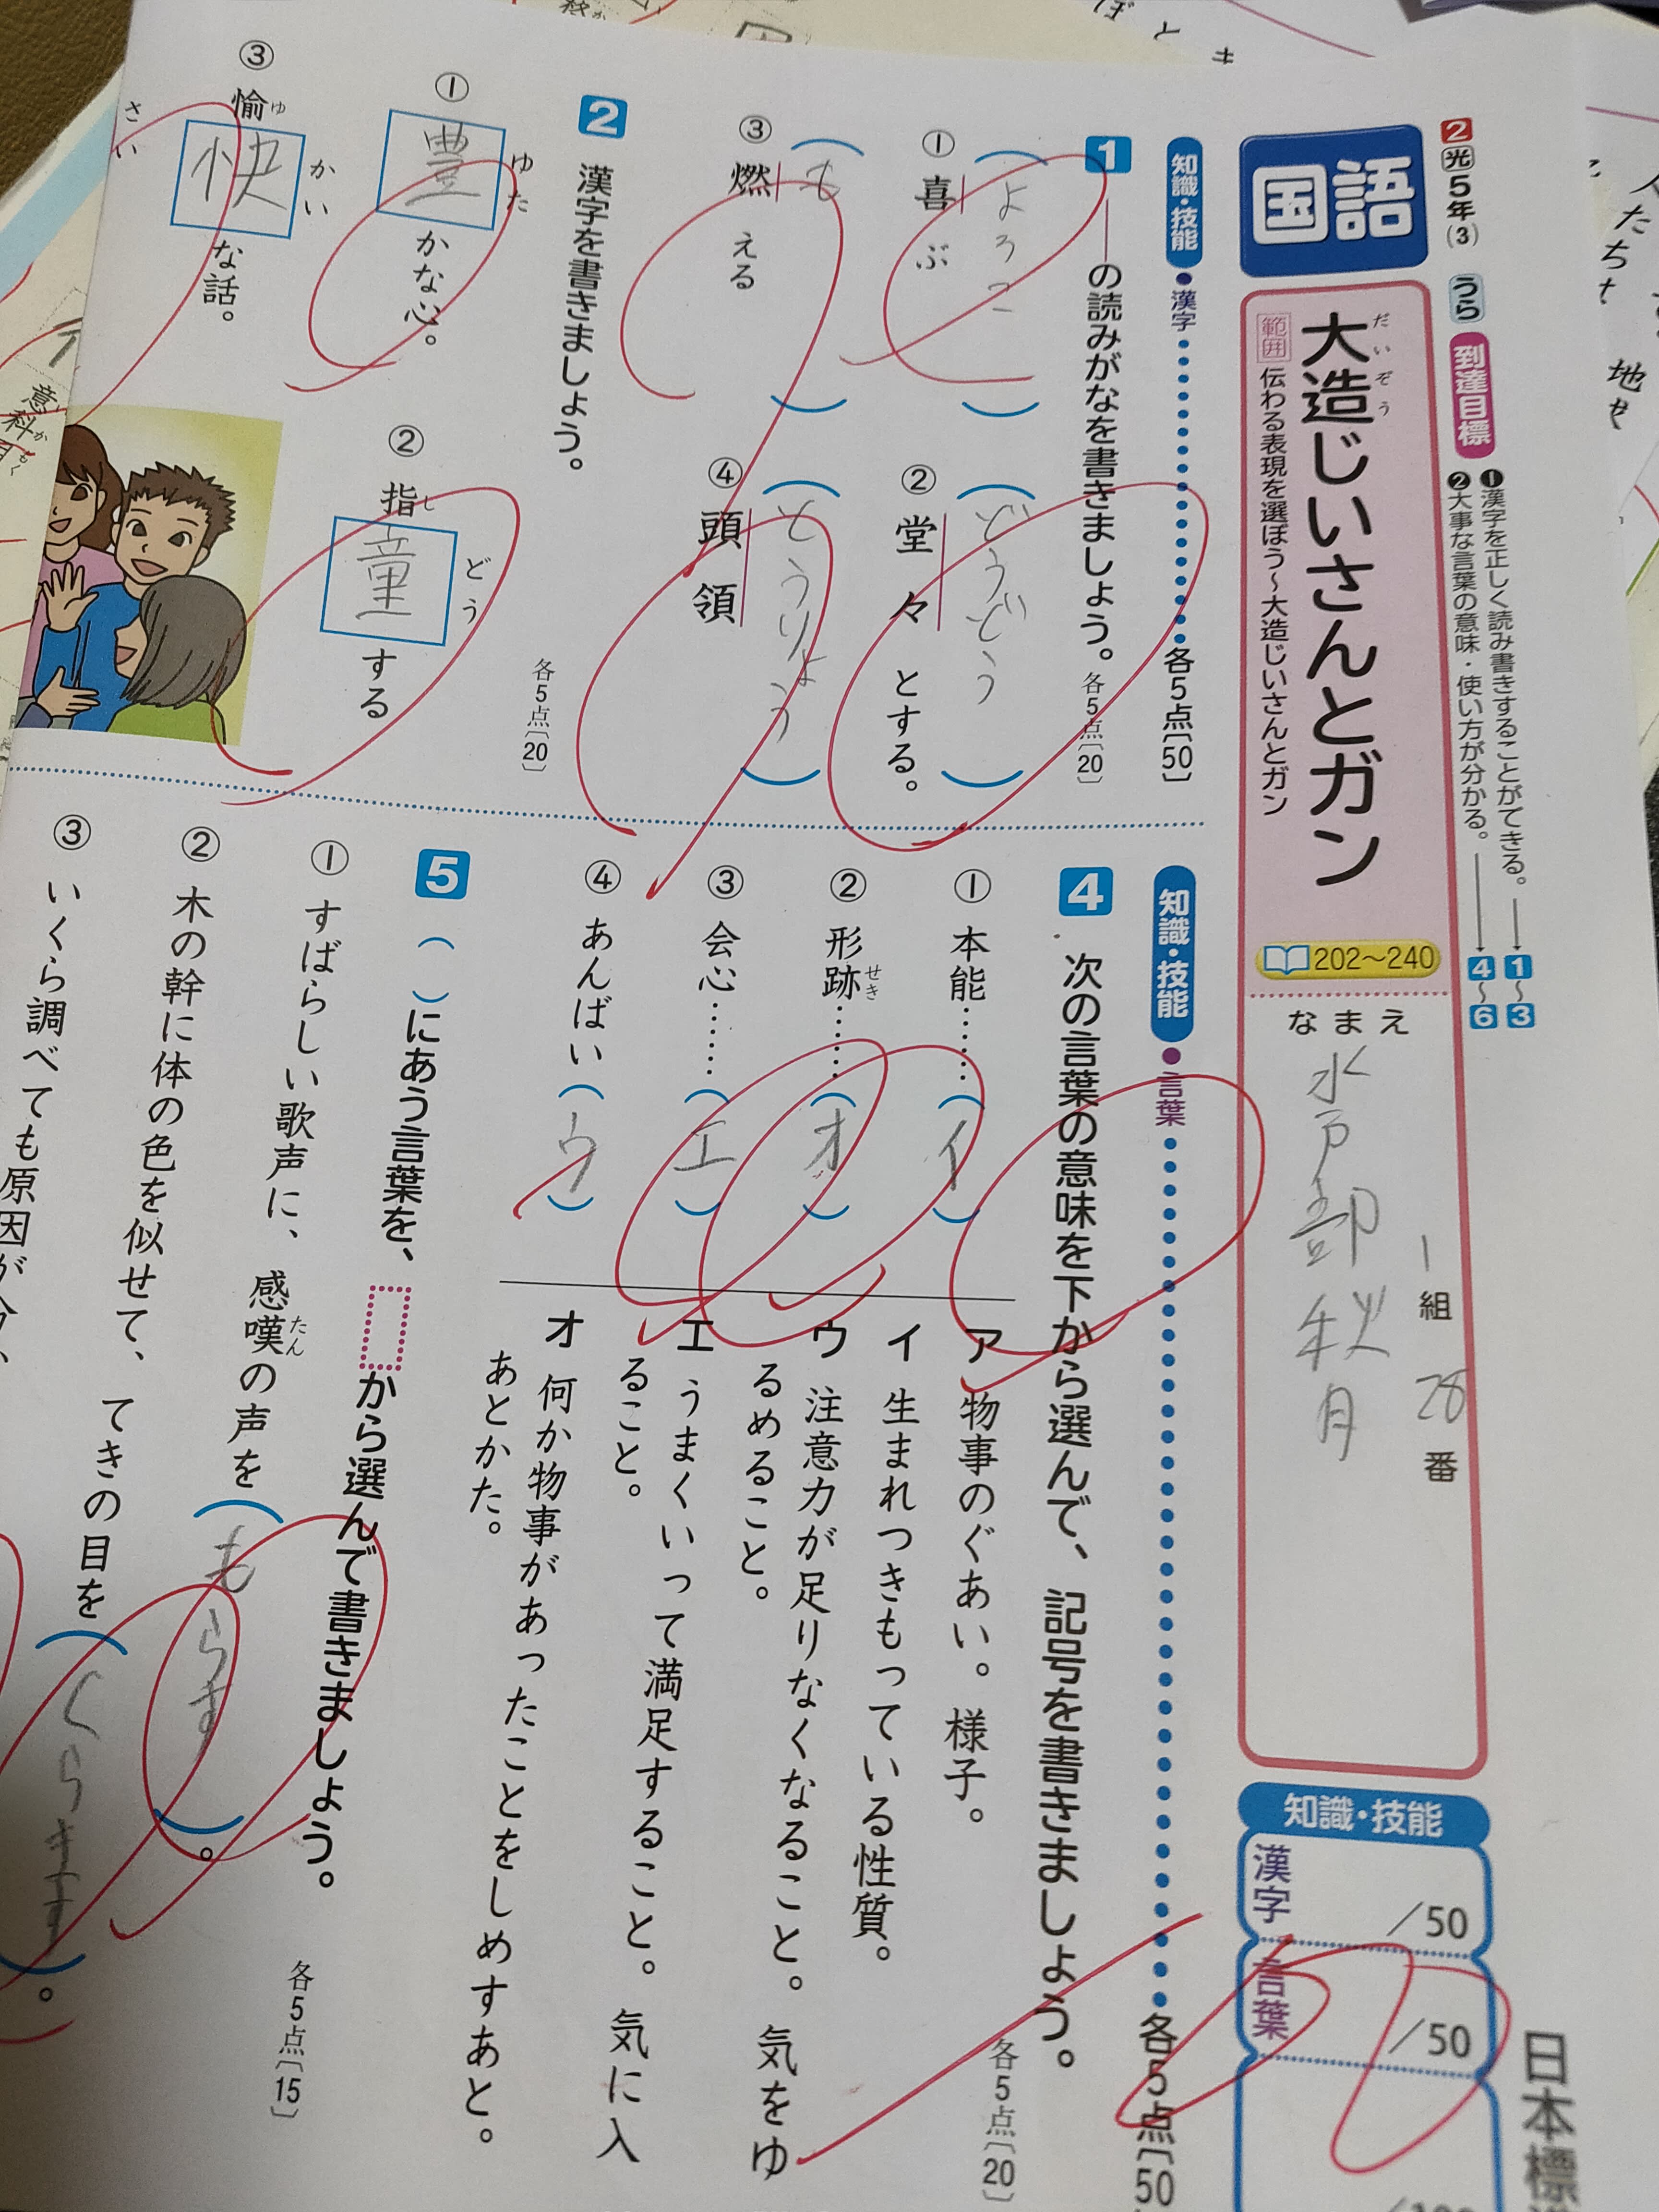 2 光 5年(3) うら 到達目標
❶漢字を正しく読み書きすることができる。 1~3
❷大事な言葉の意味・使い方が分かる。 4~6
国語
大造じいさんとガン
だいぞう
範囲 伝わる表現を選ぼう~大造じいさんとガン
202~240
なまえ
1組 28番
水戸部 秋月
知識・技能
漢字 /50
言葉 /50
日本標
知識・技能 ●漢字 各5点〔50〕
1 ――の読みがなを書きましょう。 各5点〔20〕
① 喜ぶ (よろこ)
② 堂々とする。 (どうどう)
③ 燃える (も)
④ 頭領 (とうりょう)
2 漢字を書きましょう。 各5点〔20〕
① 豊かな心。 ゆた
② 指童する しどう
③ 愉快な話。 ゆかい
さい
知識・技能 ●言葉 各5点〔50
4 次の言葉の意味を下から選んで、記号を書きましょう。 各5点〔20〕
① 本能……(イ)
② 形跡……(オ) せき
③ 会心……(エ)
④ あんばい(ウ)
ア 物事のぐあい。様子。
イ 生まれつきもっている性質。
ウ 注意力が足りなくなること。気をゆ
るめること。
エ うまくいって満足すること。気に入
ること。
オ 何か物事があったことをしめすあと。
あとかた。
5 ( )にあう言葉を、から選んで書きましょう。 各5点〔15〕
① すばらしい歌声に、感嘆の声を(もらす)。 たん
② 木の幹に体の色を似せて、てきの目を(くらます)。
③ いくら調べても原因が